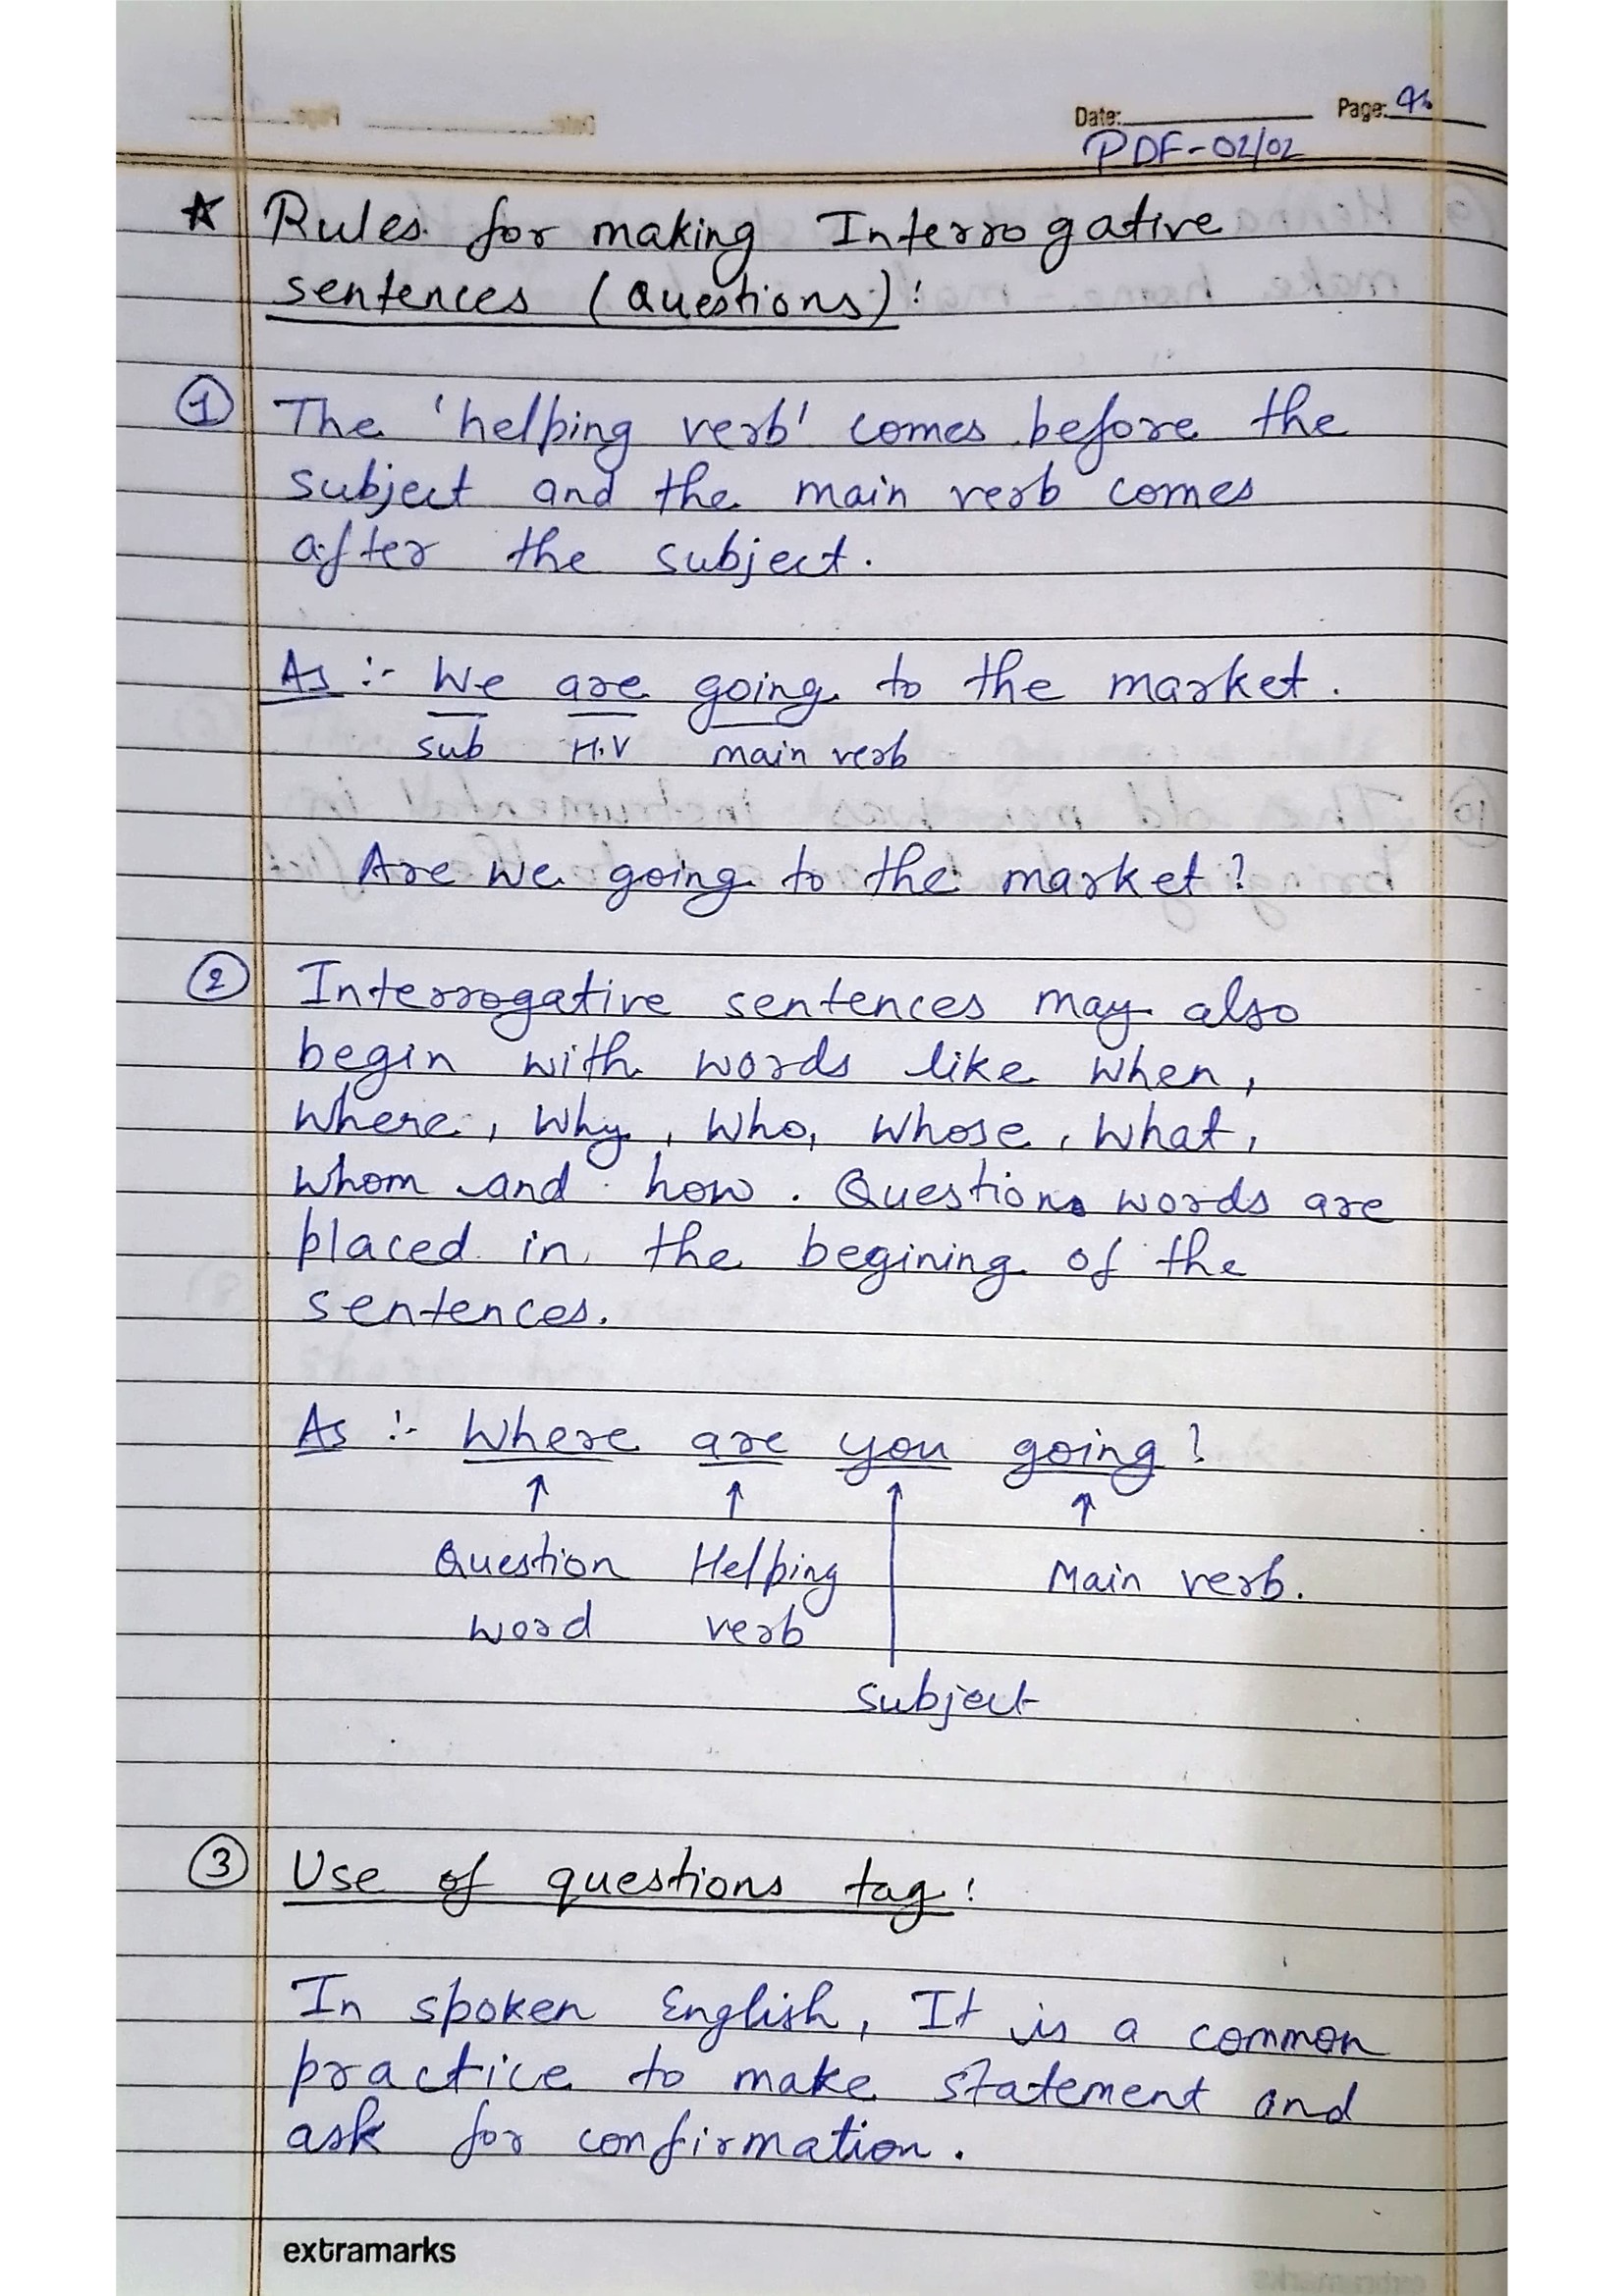 Date: Page:
PDF-02/02
☆ Rules for making Interrogative
sentences (Questions):
① The 'helping verb' comes before the
subject and the main verb comes
after the subject.
As :- We are going to the market.
sub H.V main verb
Are we going to the market?
② Interrogative sentences may also
begin with words like when,
where, why, who, whose, what,
whom and how. Question words are
placed in the begining of the
sentences.
As :- Where are you going?
Question Helping Main verb.
word verb
Subject
③ Use of questions tag:
In spoken English, It is a common
practice to make statement and
ask for confirmation.
extramarks